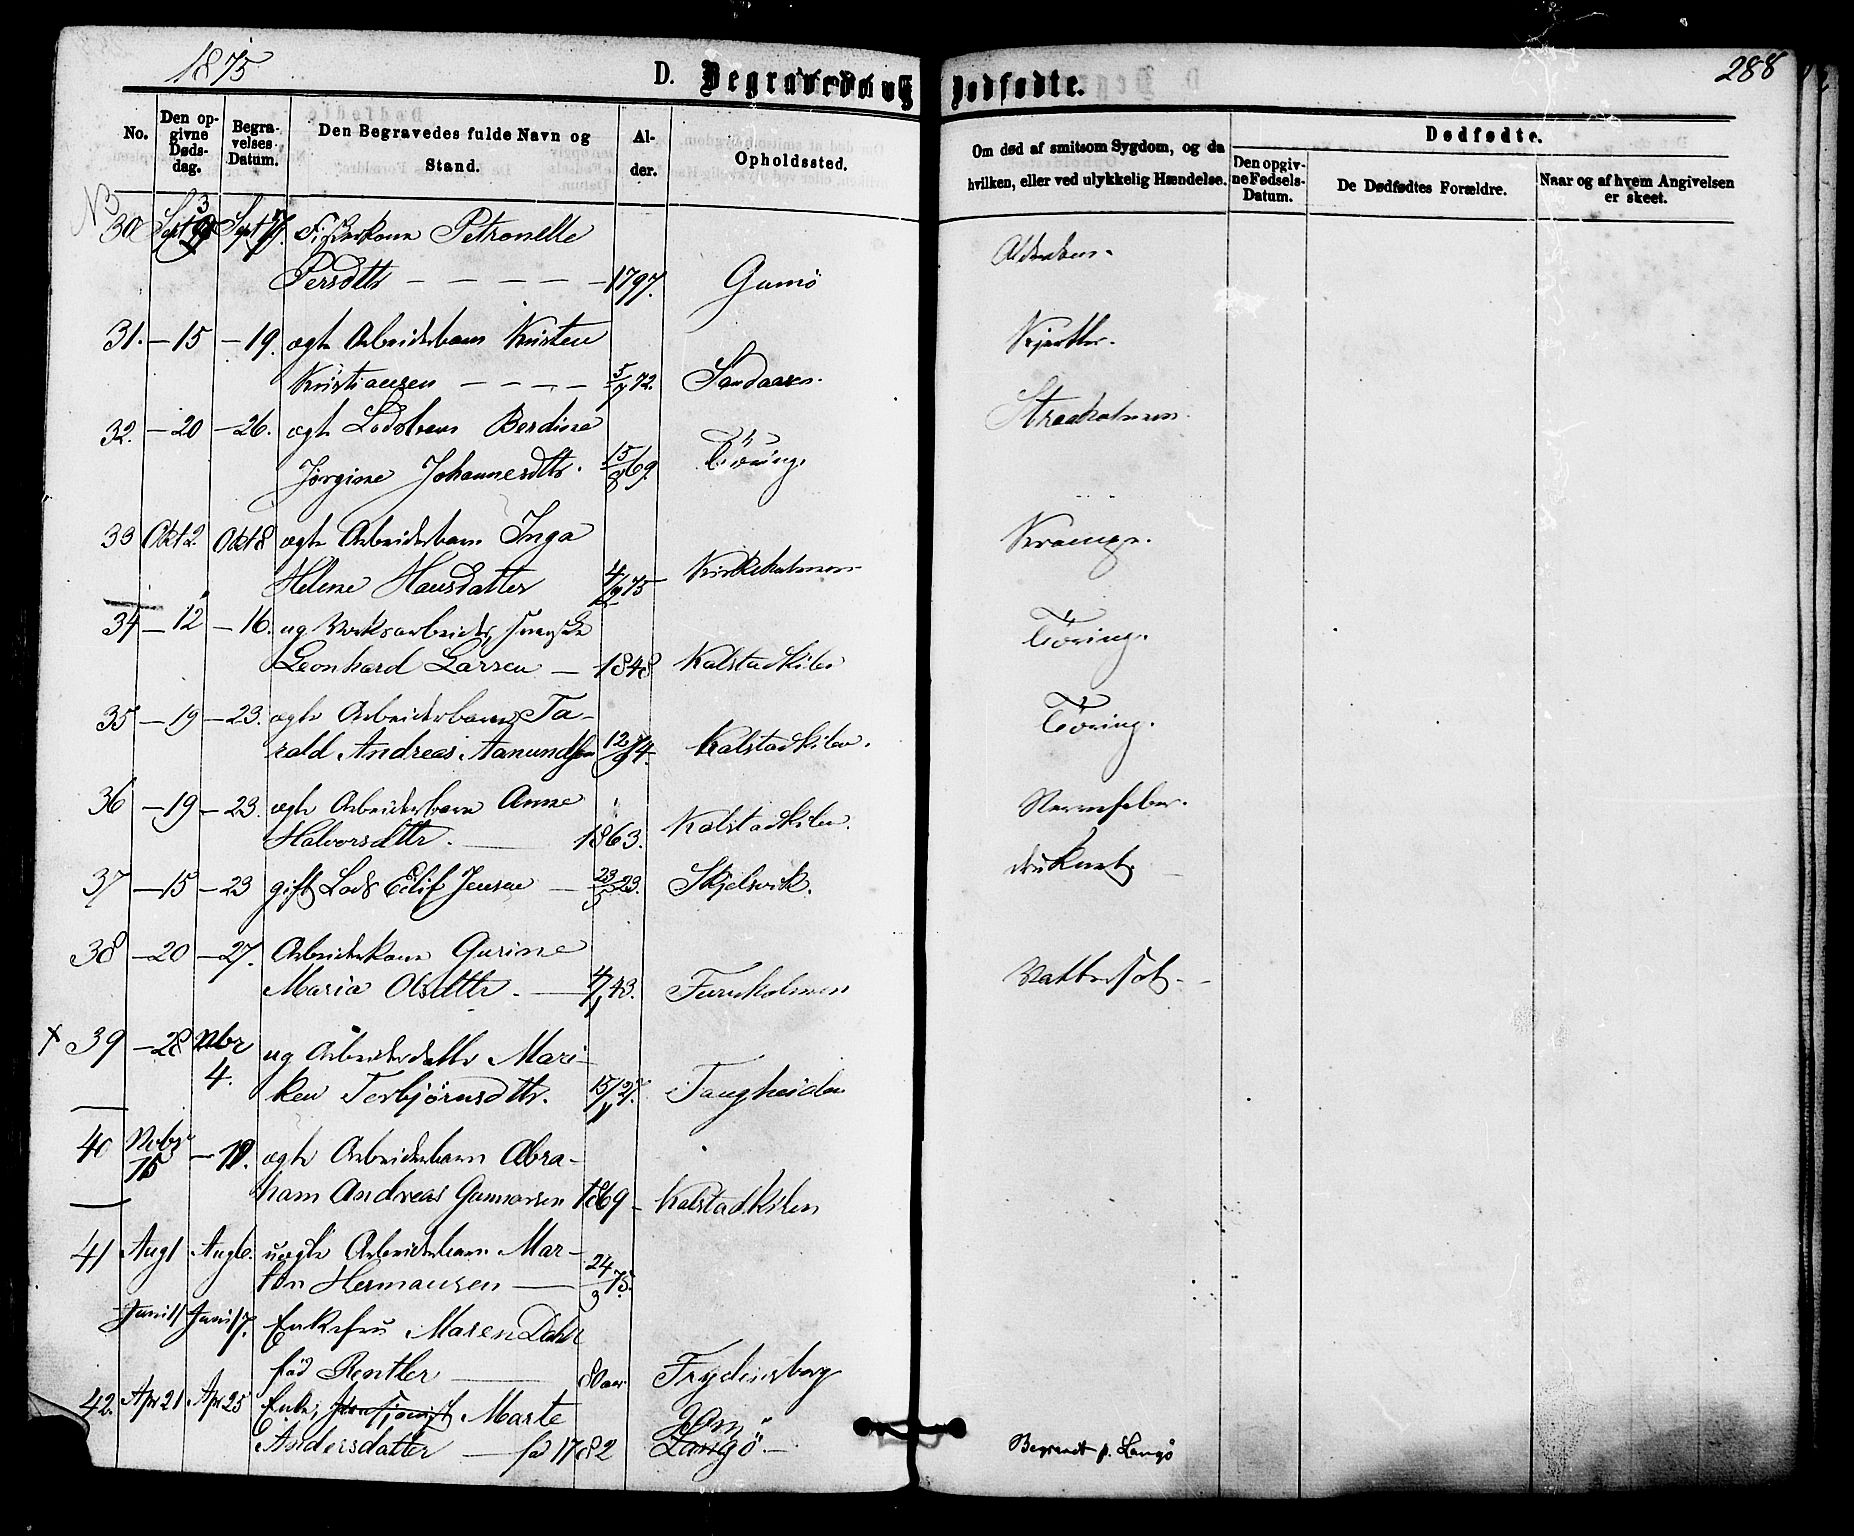 1875
D. Begravede og Dødfødte.
288
No.
Den opgivne Dødsdag.
Begravelses-Datum.
Den Begravedes fulde Navn og Stand.
Alder.
Opholdssted.
Om død af smitsom Sygdom, og da hvilken, eller ved ulykkelig Hændelse.
Dødfødte.
Den opgivne Fødsels-Datum.
De Dødfødtes Forældre.
Naar og af hvem Angivelsen er skeet.
30 Sept Sept Petronelle
Persdtr — 1797. Gumø
31. — 15 — 19. ægte Arbeiderbarn Kristen
Kristiansen — 5/7 72. Sandaasen.
32. — 20 — 26. ægte Lodsbarn Berdine
Jørgine Johannesdtr. 15/8 69.
33 Okt 2. Okt 8 ægte Arbeiderbarn Inga
Helene Hansdatter 4/9 75 Kirkeholmen
34 — 12 — 16. ug. Verksarbeider,
Leonhard Larsen — 1848 Kalstadkilen Tæring.
35 — 19 — 23. ægte Arbeiderbarn Ta-
rald Andreas Aanundsen 12/9 74. Kalstadkilen. Tæring.
36 — 19 — 23. ægte Arbeiderbarn Anne
Halvorsdtr. — 1863. Kalstadkilen. Nervefeber.
37 — 15 — 23 gift Lods Eilif Jensen — 23/5 23. Skjelsvik. druknet
38 — 20 — 27. Arbeiderkone Gurine
Maria Olsdttr. — 4/1 43. Furuholmen Vattersot.
× 39 — 28 Nbr 4. ug Arbeiderdattr Mari-
ken Torbjørnsdtr. 15/1 27. Tangheiden
40 Novbr 15 — 19. ægte Arbeiderbarn Abra-
ham Andreas Gunnarsen 1869 — Kalstadkilen
41 Aug 1 Aug 6. uægte Arbeiderbarn Mar-
tin Hermansen — 24/3 75.
Juni 11 Juni 17. Enkefru Maren Dahl
fød Rentler — 80 aar Frydensborg
42. Apr 21 Apr 25 Enke, Marte
Andersdatter — fd 1782 Langö — Begravet p. Langö